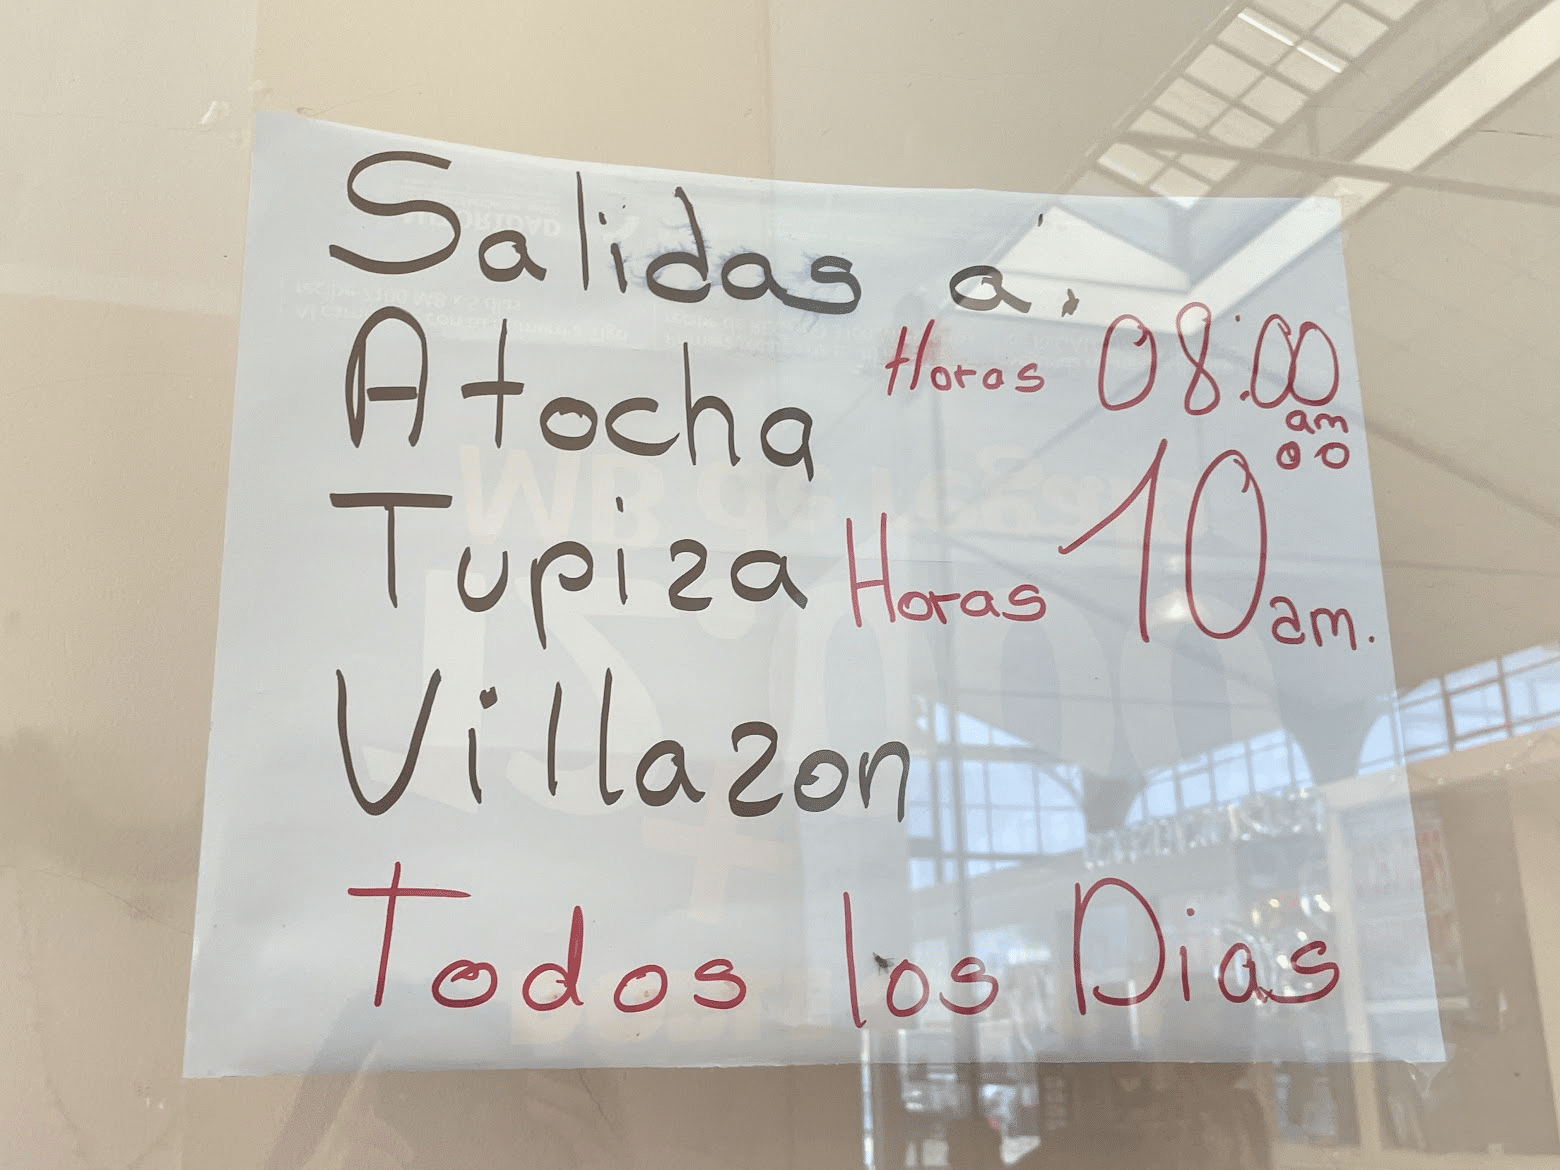 Salidas a:
Atocha Horas 08:00 am
Tupiza Horas 10 00 am.
Villazon
Todos los Dias